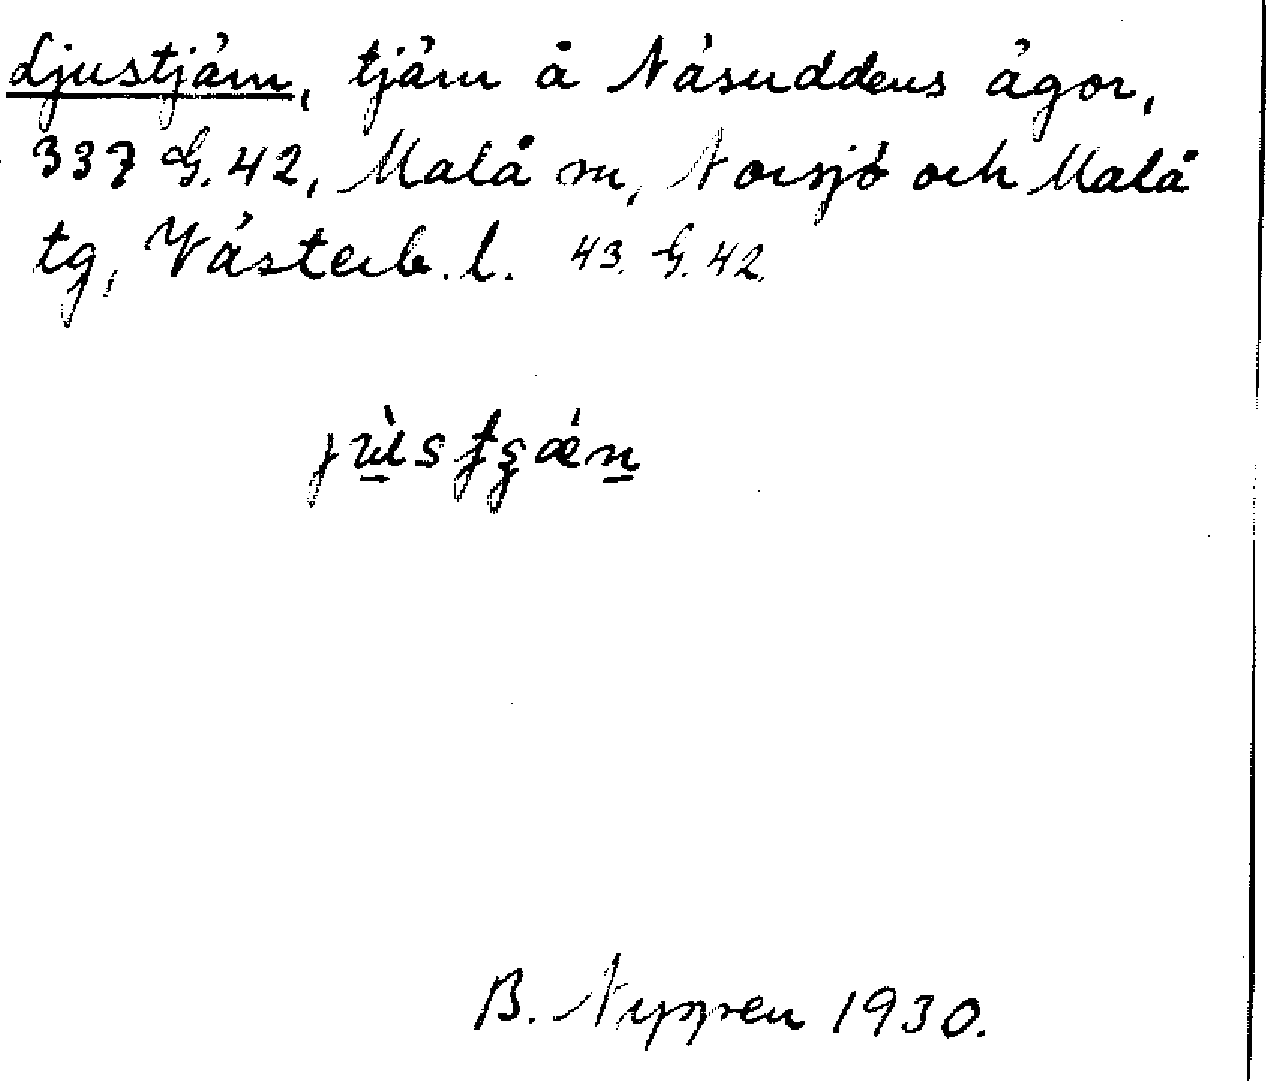 Ljustjärn, tjärn å Näsuddens ägor,
337 G. 42, Malå sn, Norsjö och Malå
tg, Västerb. l. 43. G. 42.
B. Nyppen 1930.